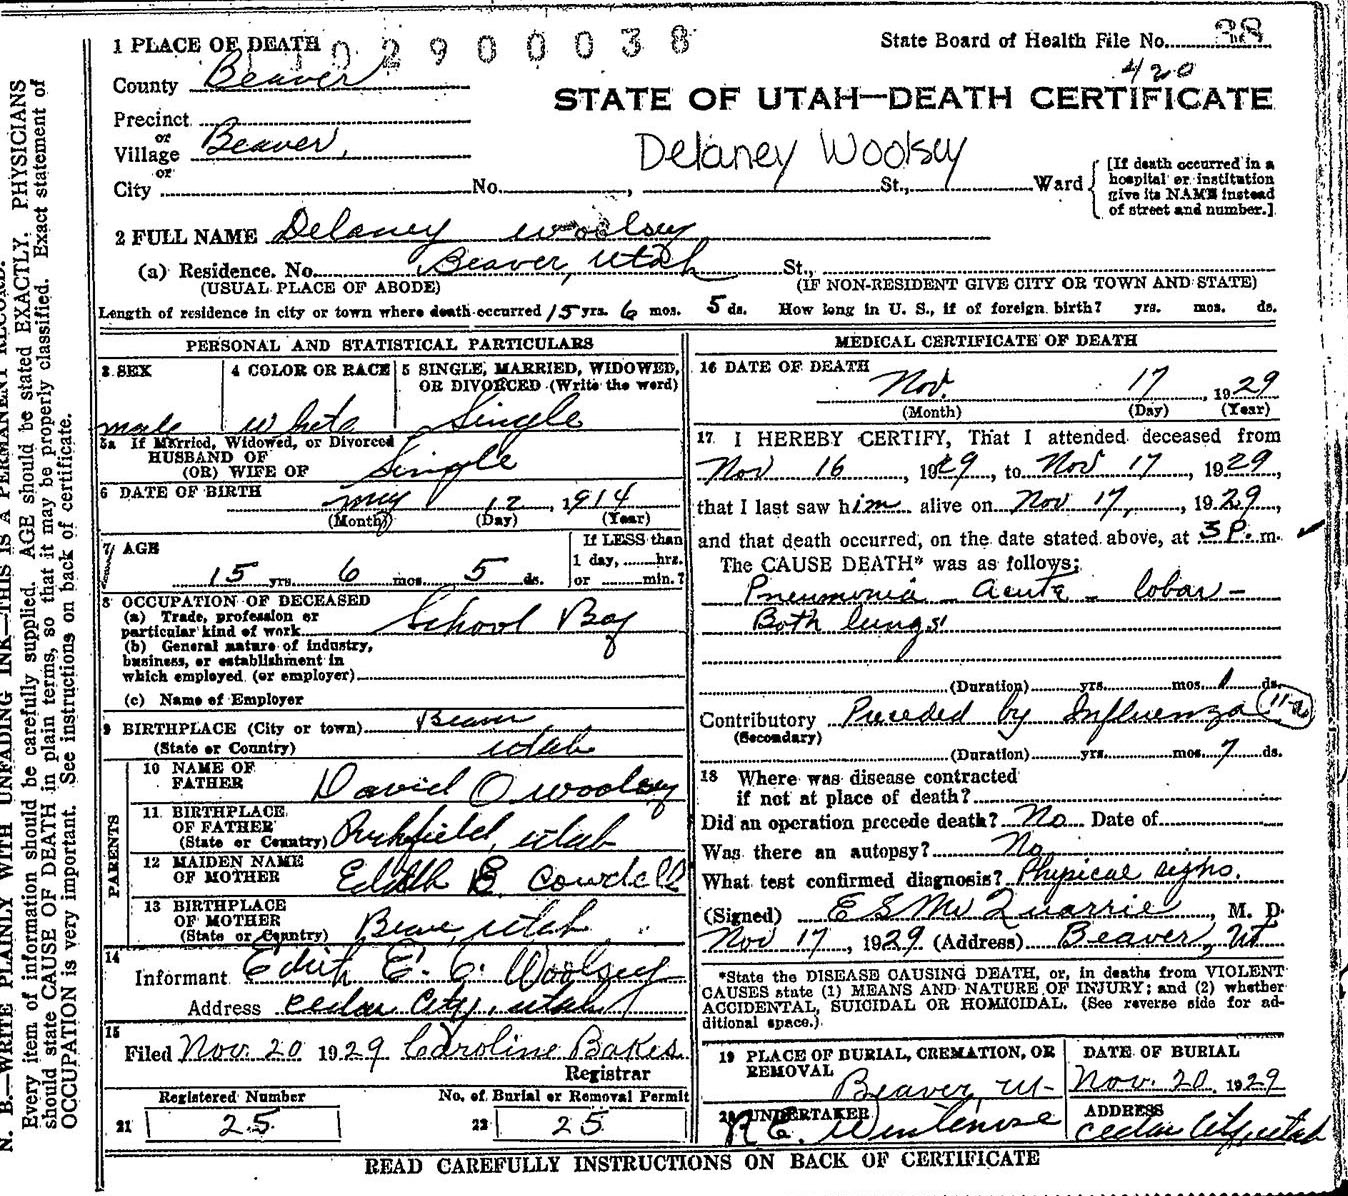 1 PLACE OF DEATH
1102900038
State Board of Health File No. 38
420
County Beaver
STATE OF UTAH—DEATH CERTIFICATE
Precinct
or
Village Beaver,
or
Delaney Woolsey
City No. , St., Ward
[If death occurred in a
hospital or institution
give its NAME instead
of street and number.]
2 FULL NAME Delaney Woolsey
(a) Residence. No. Beaver, Utah St.,
(USUAL PLACE OF ABODE) (IF NON-RESIDENT GIVE CITY OR TOWN AND STATE)
Length of residence in city or town where death occurred 15 yrs. 6 mos. 5 ds. How long in U. S., if of foreign birth? yrs. mos. ds.
PERSONAL AND STATISTICAL PARTICULARS
3 SEX
male
4 COLOR OR RACE
White
5 SINGLE, MARRIED, WIDOWED,
OR DIVORCED (Write the word)
Single
5a If Married, Widowed, or Divorced
HUSBAND OF
(OR) WIFE OF Single
6 DATE OF BIRTH
May 12, 1914
(Month) (Day) (Year)
7 AGE
15 yrs. 6 mos. 5 ds.
If LESS than
1 day, hrs.
or min.?
8 OCCUPATION OF DECEASED
(a) Trade, profession or
particular kind of work School Boy
(b) General nature of industry,
business, or establishment in
which employed (or employer)
(c) Name of Employer
9 BIRTHPLACE (City or town) Beaver
(State or Country) Utah
PARENTS
10 NAME OF
FATHER David O Woolsey
11 BIRTHPLACE
OF FATHER
(State or Country) Utah
12 MAIDEN NAME
OF MOTHER Edith E Cowdell
13 BIRTHPLACE
OF MOTHER
(State or Country) Beaver, Utah
14
Informant Edith E. C. Woolsey
Address Cedar City, Utah
15
Filed Nov. 20 1929 Caroline Bakes
Registrar
Registered Number
21 25
No. of Burial or Removal Permit
22 25
MEDICAL CERTIFICATE OF DEATH
16 DATE OF DEATH
Nov. 17, 1929
(Month) (Day) (Year)
17 I HEREBY CERTIFY, That I attended deceased from
Nov 16, 1929, to Nov 17, 1929,
that I last saw him alive on Nov 17, 1929,
and that death occurred, on the date stated above, at 3 P. m.
The CAUSE DEATH* was as follows:
Pneumonia - acute - lobar -
Both lungs
(Duration) yrs. mos. 1 ds.
Contributory Preceded by Influenza
(Secondary)
(Duration) yrs. mos. 7 ds.
18 Where was disease contracted
if not at place of death?
Did an operation precede death? No Date of
Was there an autopsy? No
What test confirmed diagnosis? Physical signs.
(Signed) E S McQuarrie, M. D.
Nov 17, 1929 (Address) Beaver, Ut
*State the DISEASE CAUSING DEATH, or, in deaths from VIOLENT
CAUSES state (1) MEANS AND NATURE OF INJURY; and (2) whether
ACCIDENTAL, SUICIDAL OR HOMICIDAL. (See reverse side for ad-
ditional space.)
19 PLACE OF BURIAL, CREMATION, OR
REMOVAL
Beaver, Ut
DATE OF BURIAL
Nov. 20, 1929
20 UNDERTAKER
R E.
ADDRESS
Cedar City Utah
READ CAREFULLY INSTRUCTIONS ON BACK OF CERTIFICATE
N. B.—WRITE PLAINLY WITH UNFADING INK—THIS IS A PERMANENT RECORD.
Every item of information should be carefully supplied. AGE should be stated EXACTLY. PHYSICIANS
should state CAUSE OF DEATH in plain terms, so that it may be properly classified. Exact statement of
OCCUPATION is very important. See instructions on back of certificate.